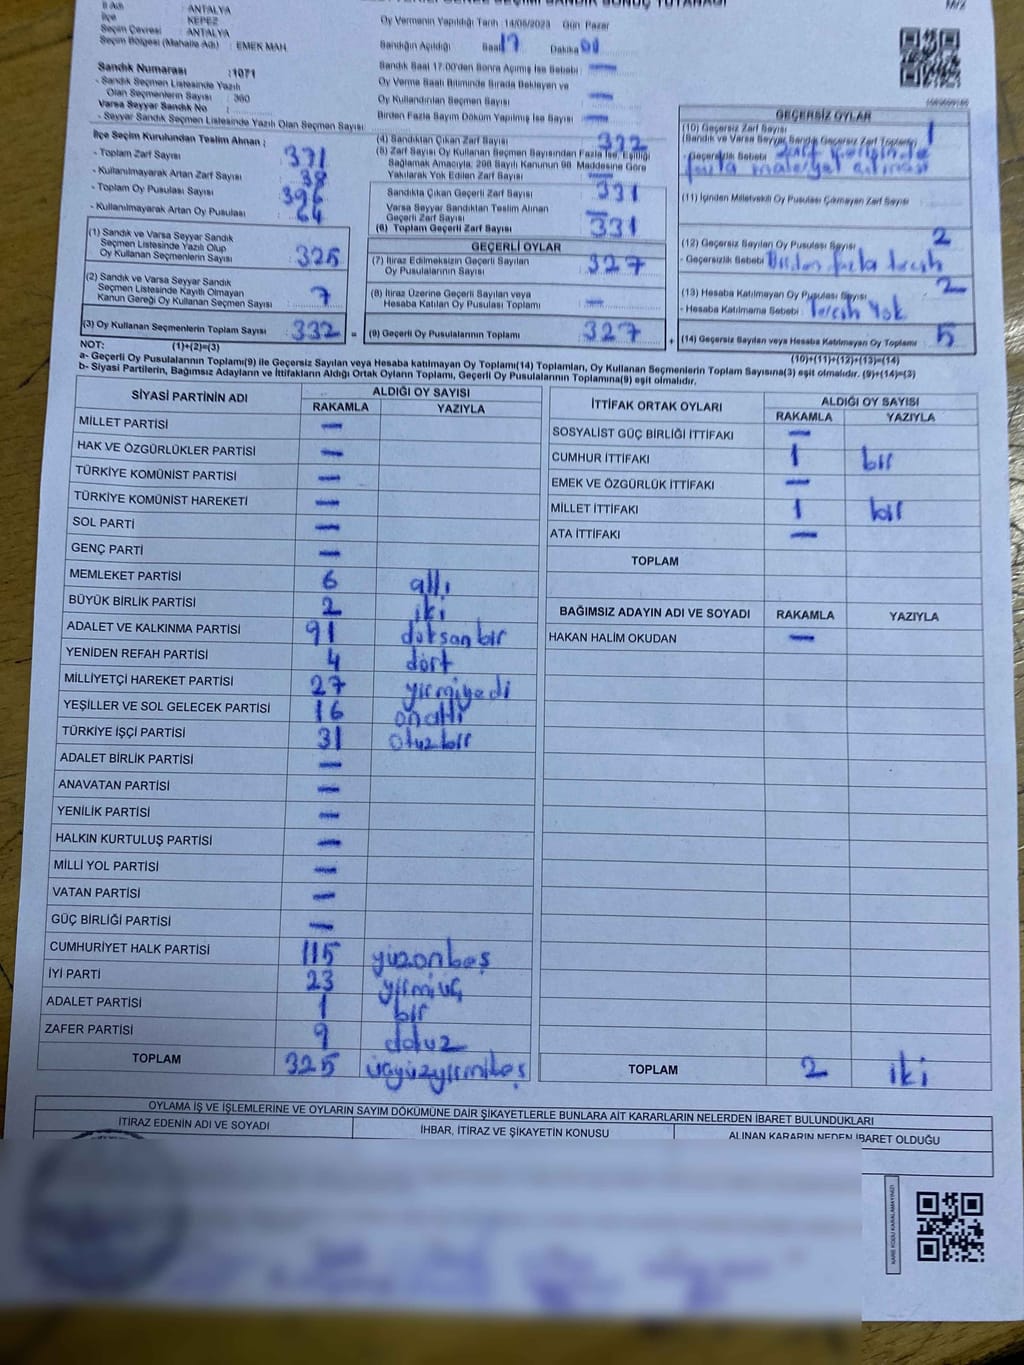 İl Adı : ANTALYA
İlçe : KEPEZ
Seçim Çevresi : ANTALYA
Seçim Bölgesi (Mahalle Adı) : EMEK MAH.
Sandık Numarası : 1071
- Sandık Seçmen Listesinde Yazılı
Olan Seçmenlerin Sayısı : 360
Varsa Seyyar Sandık No :
- Seyyar Sandık Seçmen Listesinde Yazılı Olan Seçmen Sayısı
SANDIK SONUÇ TUTANAĞI
Oy Vermenin Yapıldığı Tarih : 14/05/2023 Gün Pazar
Sandığın Açıldığı Saat 17 Dakika 01
Sandık Saat 17:00'den Sonra Açılmış İse Sebebi : —
Oy Verme Saati Bitiminde Sırada Bekleyen ve
Oy Kullandırılan Seçmen Sayısı : —
Birden Fazla Sayım Döküm Yapılmış İse Sayısı : —
İlçe Seçim Kurulundan Teslim Alınan ;
- Toplam Zarf Sayısı 371
- Kullanılmayarak Artan Zarf Sayısı : 38
- Toplam Oy Pusulası Sayısı 396
- Kullanılmayarak Artan Oy Pusulası 64
(1) Sandık ve Varsa Seyyar Sandık
Seçmen Listesinde Yazılı Olup
Oy Kullanan Seçmenlerin Sayısı : 325
(2) Sandık ve Varsa Seyyar Sandık
Seçmen Listesinde Kayıtlı Olmayan
Kanun Gereği Oy Kullanan Seçmen Sayısı : 7
(3) Oy Kullanan Seçmenlerin Toplam Sayısı : 332
(1)+(2)=(3)
(4) Sandıktan Çıkan Zarf Sayısı : 332
(5) Zarf Sayısı Oy Kullanan Seçmen Sayısından Fazla İse, Eşitliği
Sağlamak Amacıyla, 298 Sayılı Kanunun 98. Maddesine Göre
Yakılarak Yok Edilen Zarf Sayısı : —
Sandıkta Çıkan Geçerli Zarf Sayısı : 331
Varsa Seyyar Sandıktan Teslim Alınan
Geçerli Zarf Sayısı : —
(6) Toplam Geçerli Zarf Sayısı : 331
GEÇERLİ OYLAR
(7) İtiraz Edilmeksizin Geçerli Sayılan
Oy Pusulalarının Sayısı : 327
(8) İtiraz Üzerine Geçerli Sayılan veya
Hesaba Katılan Oy Pusulası Toplamı : —
= (9) Geçerli Oy Pusulalarının Toplamı : 327
GEÇERSİZ OYLAR
(10) Geçersiz Zarf Sayısı 1
(Sandık ve Varsa Seyyar Sandık Geçersiz Zarf Toplamı)
- Geçersizlik Sebebi : zarf içerisinde
fazla materyal
(11) İçinden Milletvekili Oy Pusulası Çıkmayan Zarf Sayısı
(12) Geçersiz Sayılan Oy Pusulası Sayısı 2
- Geçersizlik Sebebi Birden fazla tercih
(13) Hesaba Katılmayan Oy Pusulası Sayısı 2
- Hesaba Katılmama Sebebi : Tercih Yok
+ (14) Geçersiz Sayılan veya Hesaba Katılmayan Oy Toplamı : 5
(10)+(11)+(12)+(13)=(14)
NOT:
a- Geçerli Oy Pusulalarının Toplamı(9) ile Geçersiz Sayılan veya Hesaba katılmayan Oy Toplamı(14) Toplamları, Oy Kullanan Seçmenlerin Toplam Sayısına(3) eşit olmalıdır. (9)+(14)=(3)
b- Siyasi Partilerin, Bağımsız Adayların ve İttifakların Aldığı Ortak Oyların Toplamı, Geçerli Oy Pusulalarının Toplamına(9) eşit olmalıdır.
SİYASİ PARTİNİN ADI ALDIĞI OY SAYISI
RAKAMLA YAZIYLA
MİLLET PARTİSİ —
HAK VE ÖZGÜRLÜKLER PARTİSİ —
TÜRKİYE KOMÜNİST PARTİSİ —
TÜRKİYE KOMÜNİST HAREKETİ —
SOL PARTİ —
GENÇ PARTİ —
MEMLEKET PARTİSİ 6 altı
BÜYÜK BİRLİK PARTİSİ 2 iki
ADALET VE KALKINMA PARTİSİ 91 doksan bir
YENİDEN REFAH PARTİSİ 4 dört
MİLLİYETÇİ HAREKET PARTİSİ 27 yirmiyedi
YEŞİLLER VE SOL GELECEK PARTİSİ 16 onaltı
TÜRKİYE İŞÇİ PARTİSİ 31 otuzbir
ADALET BİRLİK PARTİSİ —
ANAVATAN PARTİSİ —
YENİLİK PARTİSİ —
HALKIN KURTULUŞ PARTİSİ —
MİLLİ YOL PARTİSİ —
VATAN PARTİSİ —
GÜÇ BİRLİĞİ PARTİSİ —
CUMHURİYET HALK PARTİSİ 115 yüzonbeş
İYİ PARTİ 23 yirmiüç
ADALET PARTİSİ 1 bir
ZAFER PARTİSİ 9 dokuz
TOPLAM 325 üçyüzyirmibeş
İTTİFAK ORTAK OYLARI ALDIĞI OY SAYISI
RAKAMLA YAZIYLA
SOSYALİST GÜÇ BİRLİĞİ İTTİFAKI —
CUMHUR İTTİFAKI 1 bir
EMEK VE ÖZGÜRLÜK İTTİFAKI —
MİLLET İTTİFAKI 1 bir
ATA İTTİFAKI —
TOPLAM
BAĞIMSIZ ADAYIN ADI VE SOYADI RAKAMLA YAZIYLA
HAKAN HALİM OKUDAN —
TOPLAM 2 iki
OYLAMA İŞ VE İŞLEMLERİNE VE OYLARIN SAYIM DÖKÜMÜNE DAİR ŞİKAYETLERLE BUNLARA AİT KARARLARIN NELERDEN İBARET BULUNDUKLARI
İTİRAZ EDENİN ADI VE SOYADI İHBAR, İTİRAZ VE ŞİKAYETİN KONUSU ALINAN KARARIN NEDEN İBARET OLDUĞU
KARE KODU KARALAMAYINIZ!